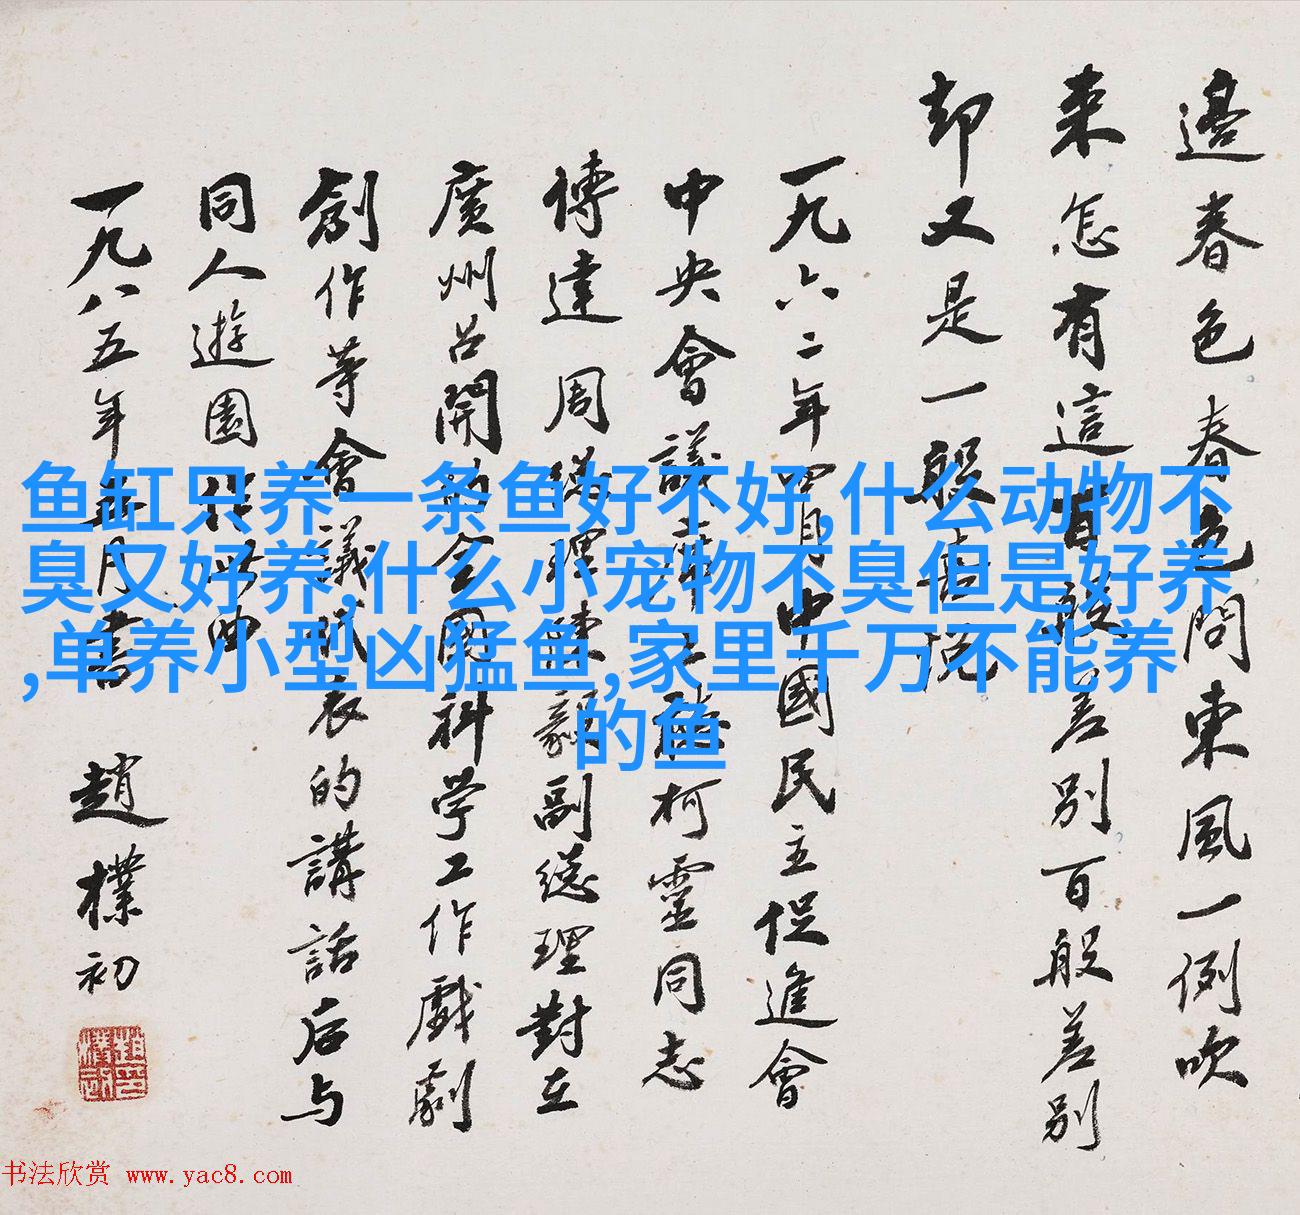 邊春色春色問東風一例吹
來怎有這百般差別百般差別
却又是一般喜悅
一九六二年四月中國民主促進會
中央會議
柯靈同志
傳達周總理陳毅副總理對在
廣州召開的全國科学工作戲劇
創作等會議代表的講話后与
同人遊園
一九八五年
趙樸初
鱼缸只养一条鱼好不好,什么动物不
臭又好养,什么小宠物不臭但是好养
,单养小型凶猛鱼,家里千万不能养
的鱼
书法欣赏 www.yac8.com